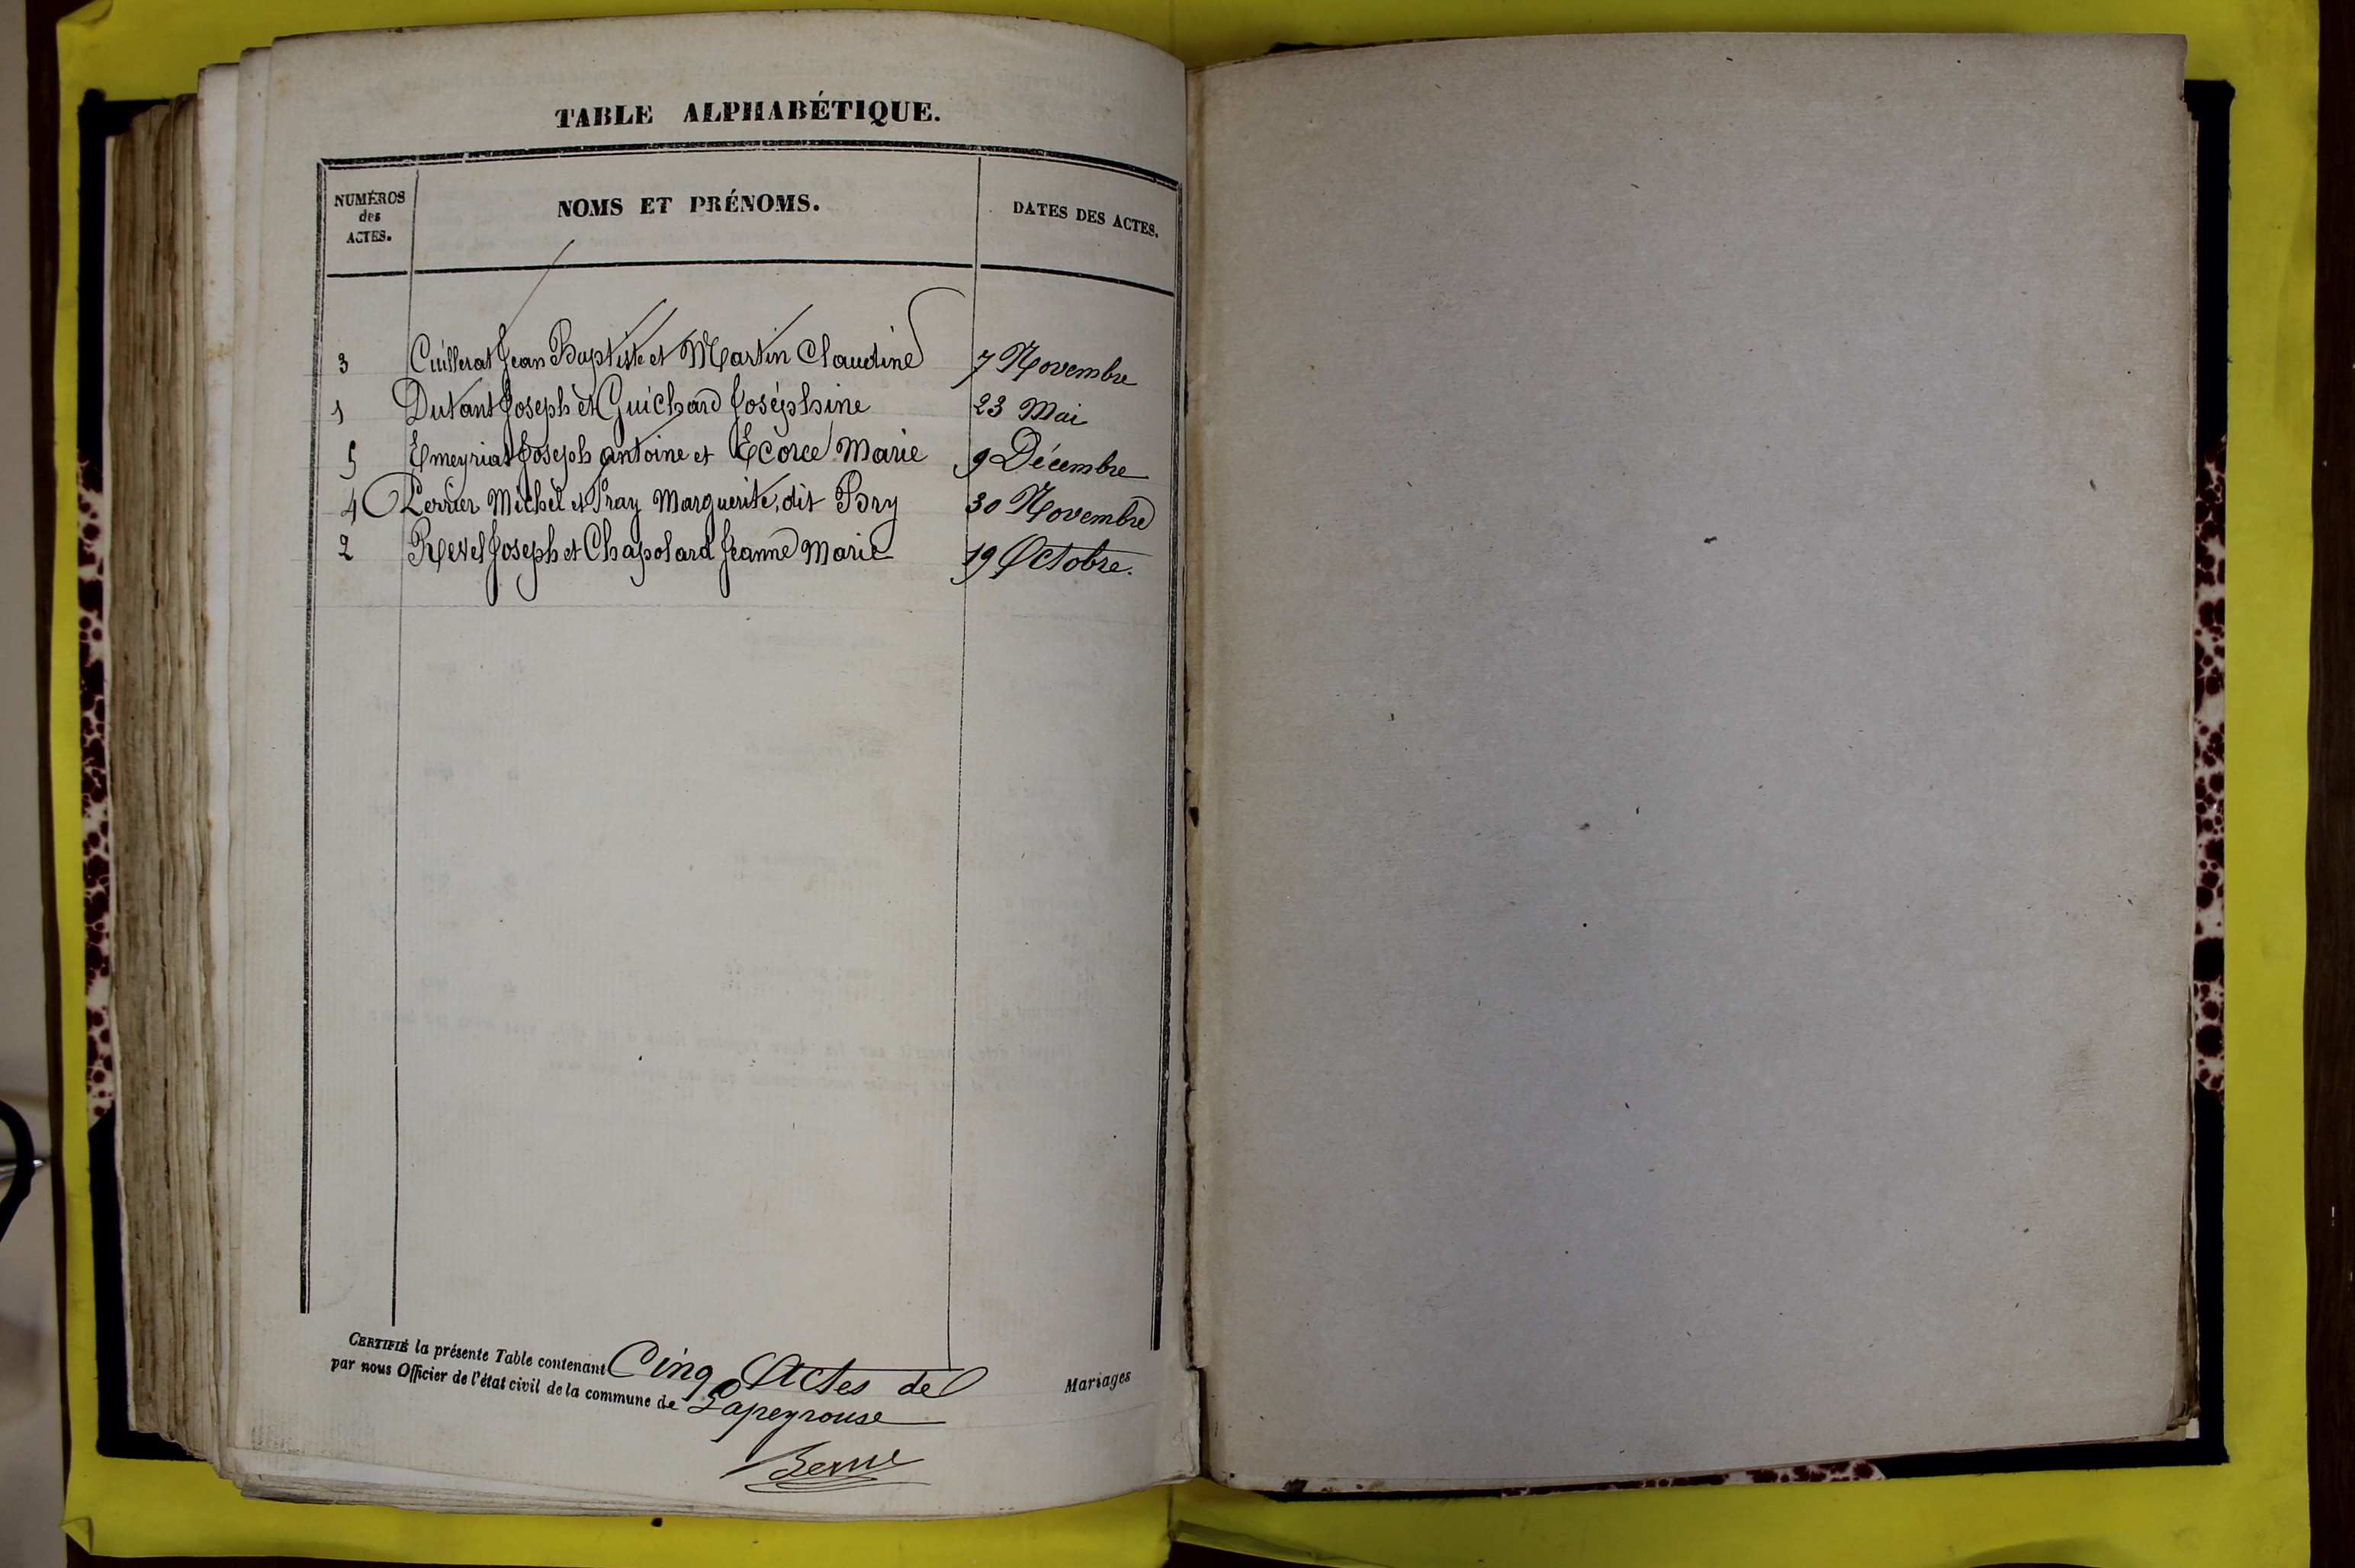 TABLE ALPHABÉTIQUE.
NUMÉROS
des
ACTES.
NOMS ET PRÉNOMS.
DATES DES ACTES.
3 Cuillerat Jean Baptiste et Martin Claudine 7 Novembre
1 Dutant Joseph et Guichard Joséphine 23 Mai
5 Emeyriat Joseph antoine et Ecorce Marie 9 Décembre
4 Perrier Michel et Pray Marguerite, dit Bry 30 Novembre
2 Revel Joseph et Chapolard Jeanne Marie 19 Octobre.
CERTIFIÉ la présente Table contenant Cinq Actes de Mariages
par nous Officier de l'état civil de la commune de Lapeyrouse